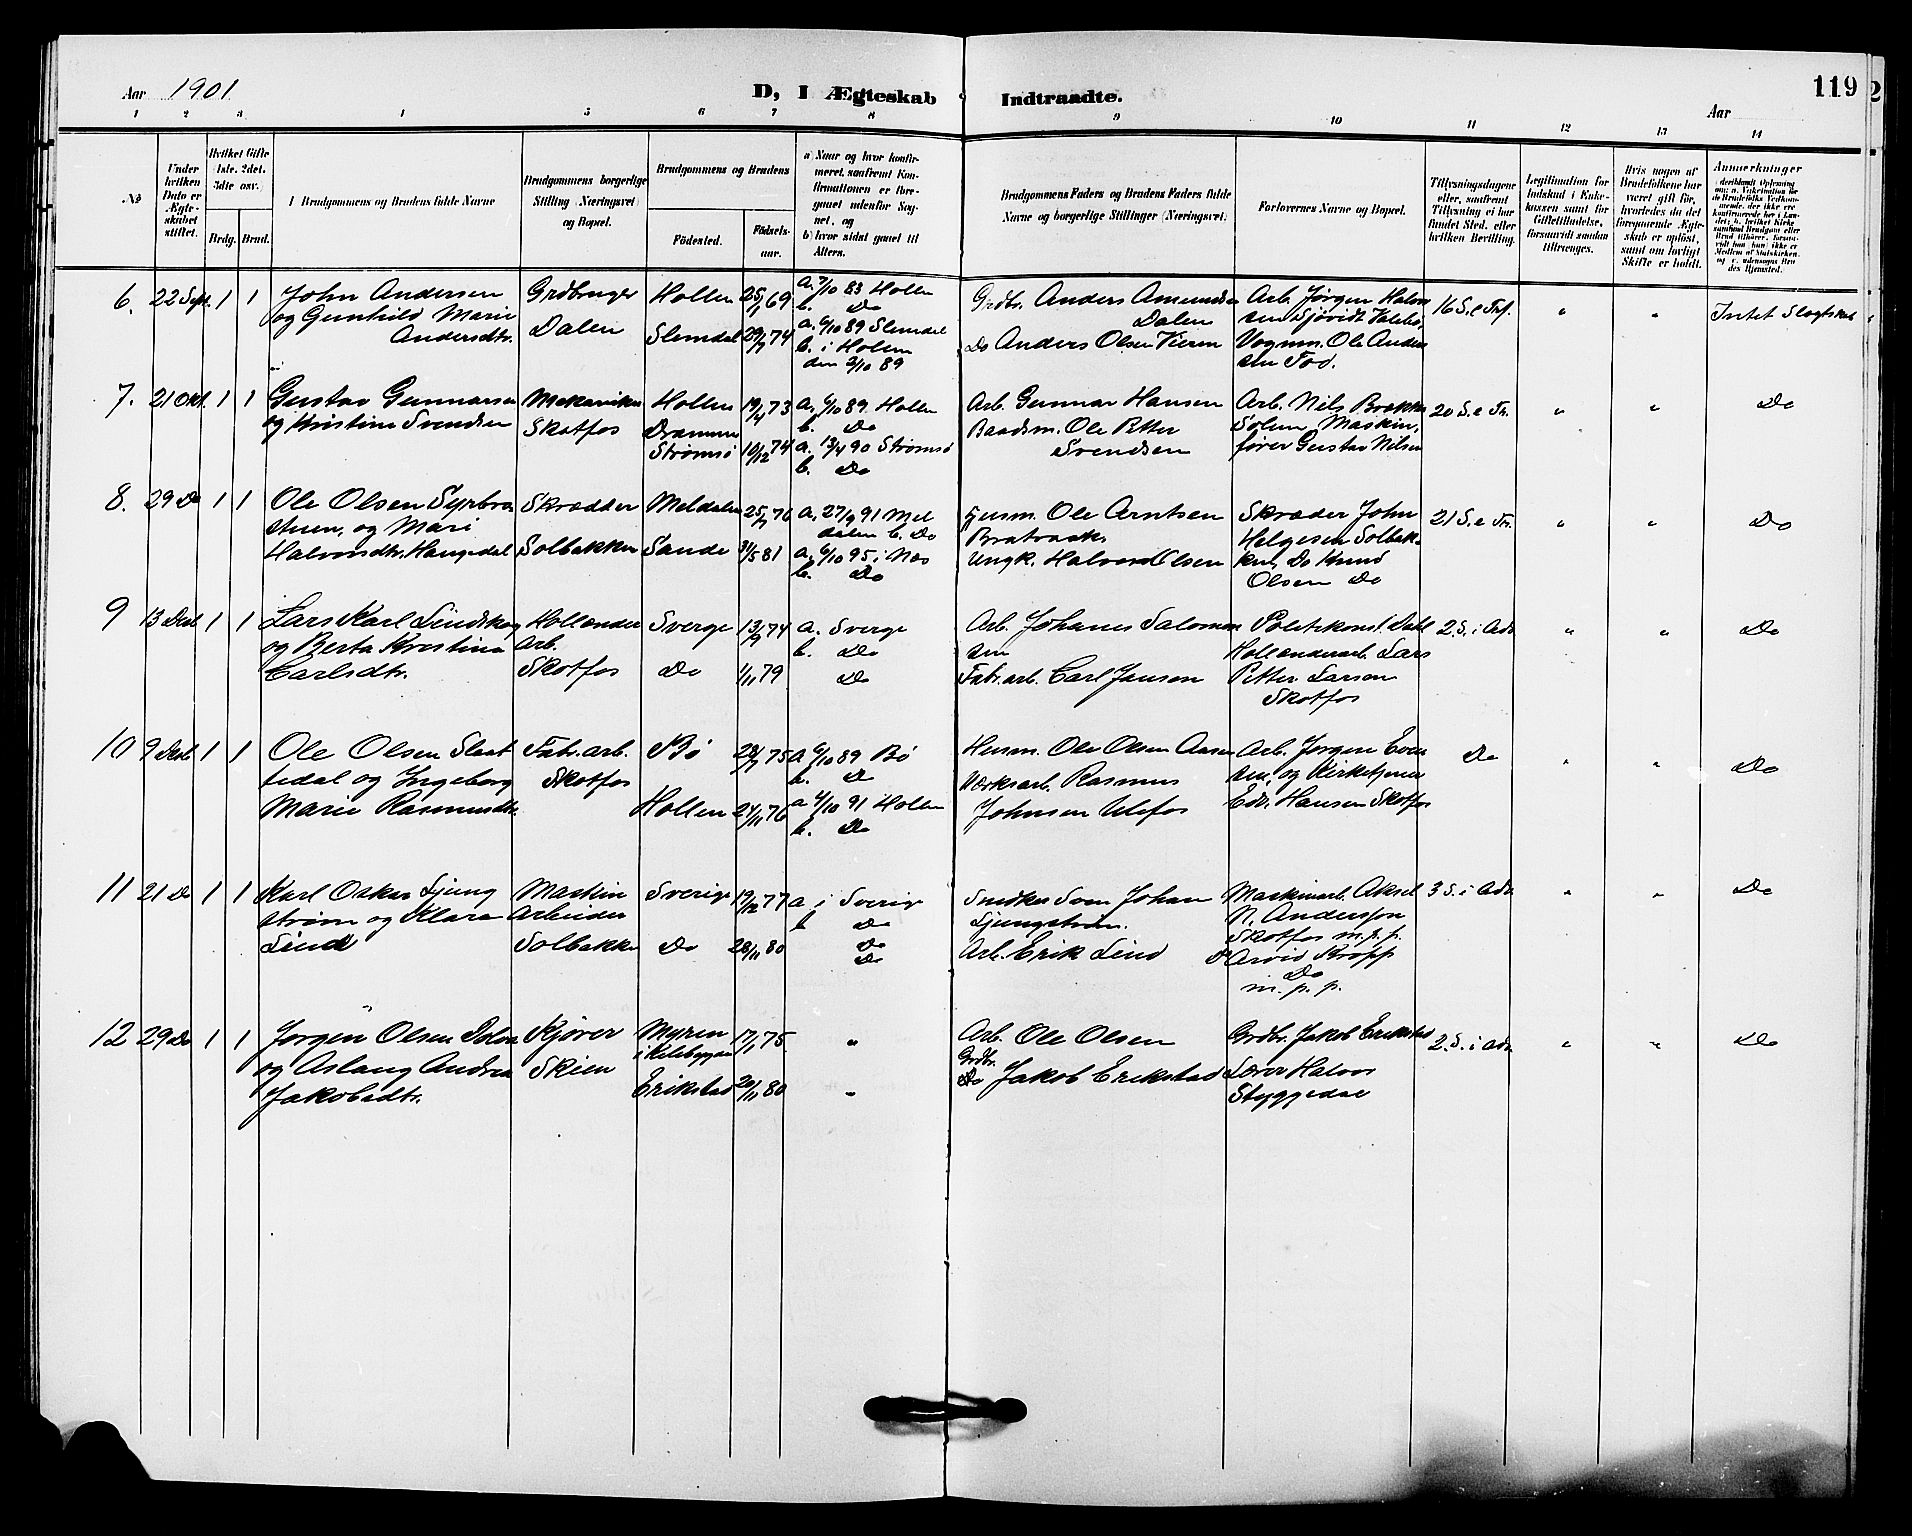 Aar 1901
D, I Ægteskab Indtraadte.
119
Aar
1 2 3 4 5 6 7 8 9 10 11 12 13 14
No
Under hvilken Dato er Ægteskabet stiftet.
Hvilket Gifte (1ste. 2det. 3die osv.)
Brdg. Brud.
I Brudgommens og Brudens fulde Navne
Brudgommens borgerlige Stilling (Næringsvei) og Bopæl.
Brudgommens og Brudens
Fødested.
Fødselsaar.
a) Naar og hvor konfirmeret, saafremt Konfirmationen er foregaaet udenfor Sognet, og
b) hvor sidst gaaet til Alters.
Brudgommens Faders og Brudens Faders fulde Navne og borgerlige Stillinger (Næringsvei)
Forlovernes Navne og Bopæl.
Tillysningsdagene eller, saafremt Tillysning ei har fundet Sted, efter hvilken Bevilling.
Legitimation for Indskud i Enkekassen samt for Giftetilladelse, forsaavidt saadan tiltrænges.
Hvis nogen af Brudefolkene har været gift før, hvorledes da det foregaaende Ægteskab er opløst, samt om lovligt Skifte er holdt.
Anmærkninger
6. 22 Sept. 1 1
John Andersen
og Gunhild Marie
Andersdtr.
Grdbruger
Dalen
Hollen 25/1 69
Slemdal 29/7 74
a. 7/10 83 Hollen
b. Do
a. 6/10 89 Slemdal
b. i Hollen
den 2/10 89
Grdbr. Anders Amundsen
Dalen
Do Anders Olsen Vieren
Arb. Jørgen Halvor
sen Sjøvidt Valebø,
Vognm. Ole Ander
sen Fod.
16 S. e Tref.
" "
Intet Slegtskab
7. 21 Okt. 1 1
Gustav Gunnarsen
og Kristine Svendsen
Mekaniker
Skotfos
Hollen 19/4 73
Drammen
Strømsø 10/12 74
a. 6/10 89. Hollen
b. Do
a. 13/4 90 Strømsø
b. Do
Arb. Gunnar Hansen
Baadsm. Ole Petter
Svendsen
Arb. Nils Brekke
Solum, Maskin,
fører Gustav Nilsen
20 S. e Tr.
" "
Do
8. 29 Do 1 1
Ole Olsen Syrbro
stuen, og Mari
Halvorsdtr. Haugedal
Skrædder
Solbakken
Meldalen 25/7 76
Sande 31/5 81
a. 27/9 91 Mel
dalen b. Do
a. 6/10 95. i Næs
b. Do
Husm. Ole Arntsen
Bratraaks
Ungk. Halvord Olsen
Skræder John
Helgesen Solbak
ken, Do Knud
Olsen Do
21 S. e Tr.
" "
Do
9 13 Desb 1 1
Lars Karl Lindskog
og Berta Kristina
Carlsdtr.
Hollænder
Arb.
Skotfos
Sverge 13/9 74
Do 1/11 79
a. Sverge
b. Do
Do
Arb. Johanes Salomon
sen
Fabr. arb. Carl Jansen
Politikonst. Dahl
Hollænderarb. Lars
Petter Larsen
Skotfos
2. S. i Adv
" "
Do
10 9 Desb 1 1
Ole Olsen Slaat
tedal og Ingeborg
Marie Rasmusdtr.
Fab. arb.
Skotfos
Bø 28/7 75
Hollen 24/11 76
a 6/10 89 Bø
b. Do
a 4/10 91 Hollen
b. Do
Husm. Ole Olsen Aasen
Værksarb. Rasmus
Johnsen Ulefos
Arb. Jørgen Even
sen, og Kirketjener
Edv. Hansen Skotfos
Do
" "
Do
11 21 Do 1 1
Karl Oskar Ljung
strøm og Klara
Lind
Maskin
Arbeider
Solbakken
Sverige 19/12 77
Do 28/11 80
a i Sverig
b Do
Do
Do
Snedker Sven Johan
Ljungstrøm.
Arb. Erik Lind
Maskinarb. Aksel
N. Andersson
Skotfos m.p.p.
Do Arvid Kropp
Do
m. p. p.
3 S. i Adv
" "
Do
12 29 Do 1 1
Jørgen Olsen Dolva
og Aslaug Andrea
Jakobsdtr.
Kjører
Skien
Myren
i Kilebygden 17/1 75
Erikstad 20/11 80
"
"
Arb. Ole Olsen
Grdbr.
Do Jakob Erikstad
Grdbr. Jakob Erikstad
Lærer Halvor
Styggedal
2. S. i Adv.
" "
Do